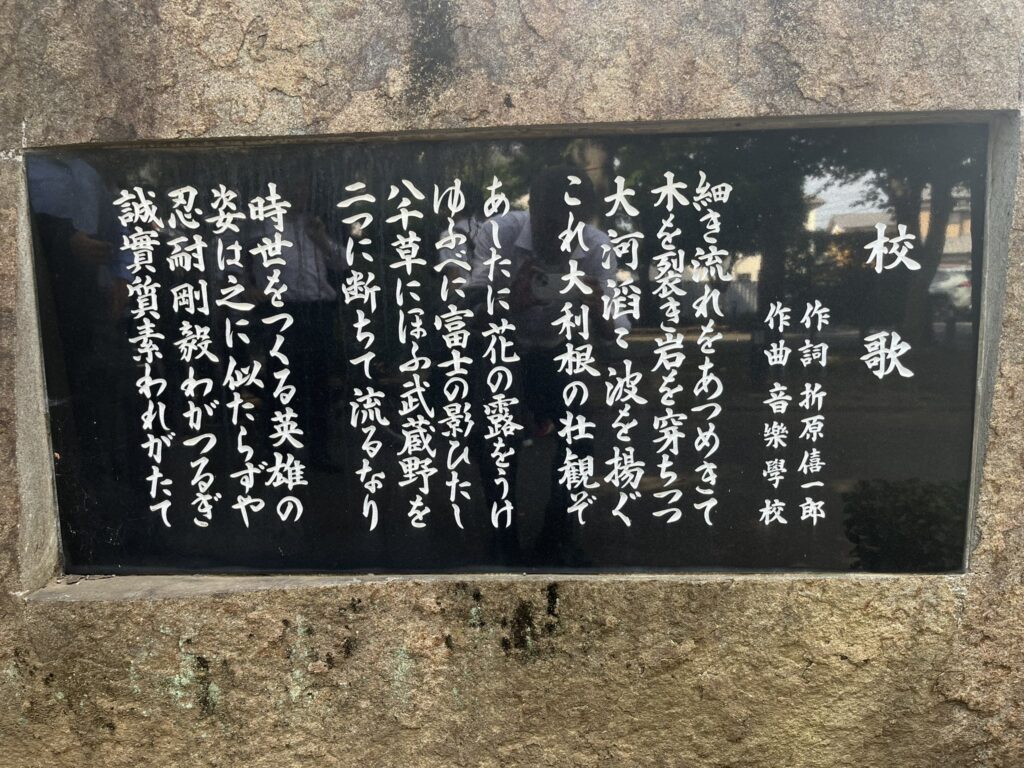 校歌
作詞 折原僖一郎
作曲 音樂學校
細き流れをあつめきて
木を裂き岩を穿ちつつ
大河滔々波を揚ぐ
これ大利根の壮観ぞ
あしたに花の露をうけ
ゆふべに富士の影ひたし
八千草にほふ武蔵野を
二つに断ちて流るなり
時世をつくる英雄の
姿は之に似たらずや
忍耐剛毅わがつるぎ
誠實質素われがたて